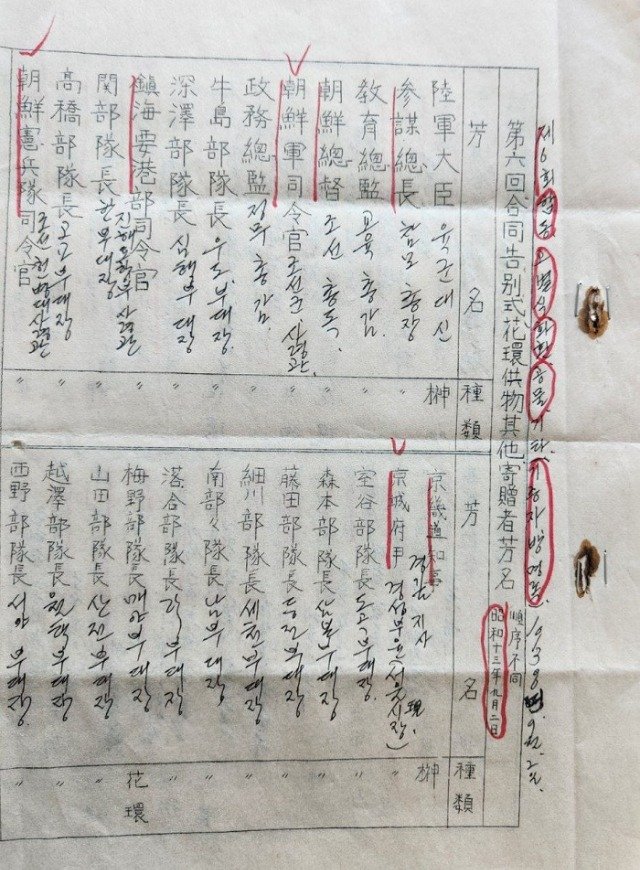 제6회 합동 고별식 화환 공물 기타 기증자 방명록. 1938년 9월 2일.
第六回合同告別式花環供物其他寄贈者芳名
順序不同
昭和十三年九月二日
芳名 種類
陸軍大臣 육군대신 榊
參謀總長 참모총장 〃
敎育總監 교육총감 〃
朝鮮總督 조선총독 〃
朝鮮軍司令官 조선군 사령관 〃
政務總監 정무총감 〃
牛島部隊長 우도부대장 〃
深澤部隊長 심택부대장 〃
鎭海要港部司令官 진해요항부사령관 〃
関部隊長 관부대장 〃
高橋部隊長 고교부대장 〃
朝鮮憲兵隊司令官 조선헌병대사령관 〃
芳名 種類
京畿道知事 경기도지사 榊
京城府尹 경성부윤(현 서울시장) 〃
室谷部隊長 부대장 〃
森本部隊長 삼본부대장 〃
藤田部隊長 등전부대장 〃
細川部隊長 세천부대장 〃
南部々隊長 남부부대장 〃
落合部隊長 부대장 〃
梅野部隊長 매야부대장 花環
山田部隊長 산전부대장 〃
越澤部隊長 월택부대장 〃
西野部隊長 서야부대장 〃